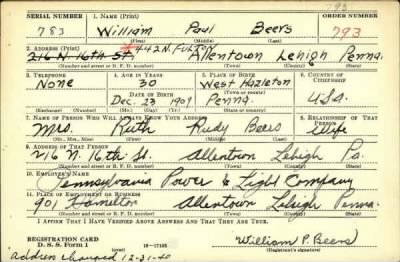 793
SERIAL NUMBER 1. NAME (Print) ORDER NUMBER
783 William Paul Beers 793
(First) (Middle) (Last)
2. ADDRESS (Print) 442 N. FULTON
216 N. 16th St. Allentown Lehigh Penna.
(Number and street or R. F. D. number) (Town) (County) (State)
3. TELEPHONE 4. AGE IN YEARS 5. PLACE OF BIRTH 6. COUNTRY OF CITIZENSHIP
None 30 West Hazleton
DATE OF BIRTH (Town or county)
Dec. 23 1909 Penna. U.S.A.
(Exchange) (Number) (Mo.) (Day) (Yr.) (State or country)
7. NAME OF PERSON WHO WILL ALWAYS KNOW YOUR ADDRESS 8. RELATIONSHIP OF THAT PERSON
Mrs. Ruth Rudy Beers Wife
(Mr., Mrs., Miss) (First) (Middle) (Last)
9. ADDRESS OF THAT PERSON
216 N. 16th St. Allentown Lehigh Pa.
(Number and street or R. F. D. number) (Town) (County) (State)
10. EMPLOYER'S NAME
Pennsylvania Power & Light Company
11. PLACE OF EMPLOYMENT OR BUSINESS
901 Hamilton Allentown Lehigh Penna.
(Number and street or R. F. D. number) (Town) (County) (State)
I AFFIRM THAT I HAVE VERIFIED ABOVE ANSWERS AND THAT THEY ARE TRUE.
REGISTRATION CARD
D. S. S. Form 1 16-17105 William P. Beers
(Registrant's signature)
address changed 12-31-40